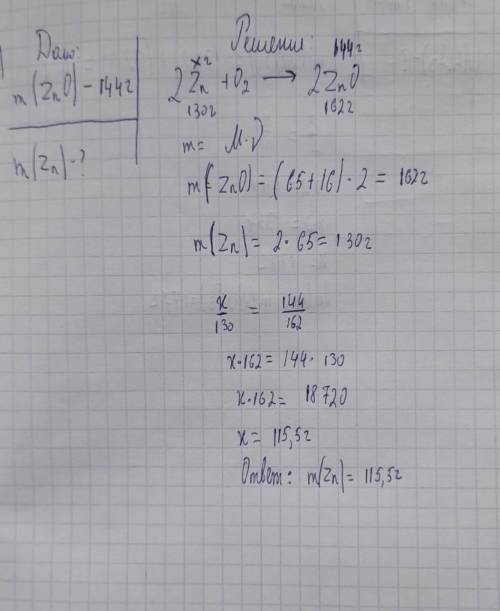 Дано:
m(ZnO) - 144г
m(Zn) - ?
Решение:
xг 144г
2Zn + O₂ → 2ZnO
130г 162г
m = M·ν
m(ZnO) = (65+16)·2 = 162г
m(Zn) = 2·65 = 130г
x/130 = 144/162
x·162 = 144·130
x·162 = 18720
x = 115,5г
Ответ: m(Zn) = 115,5г